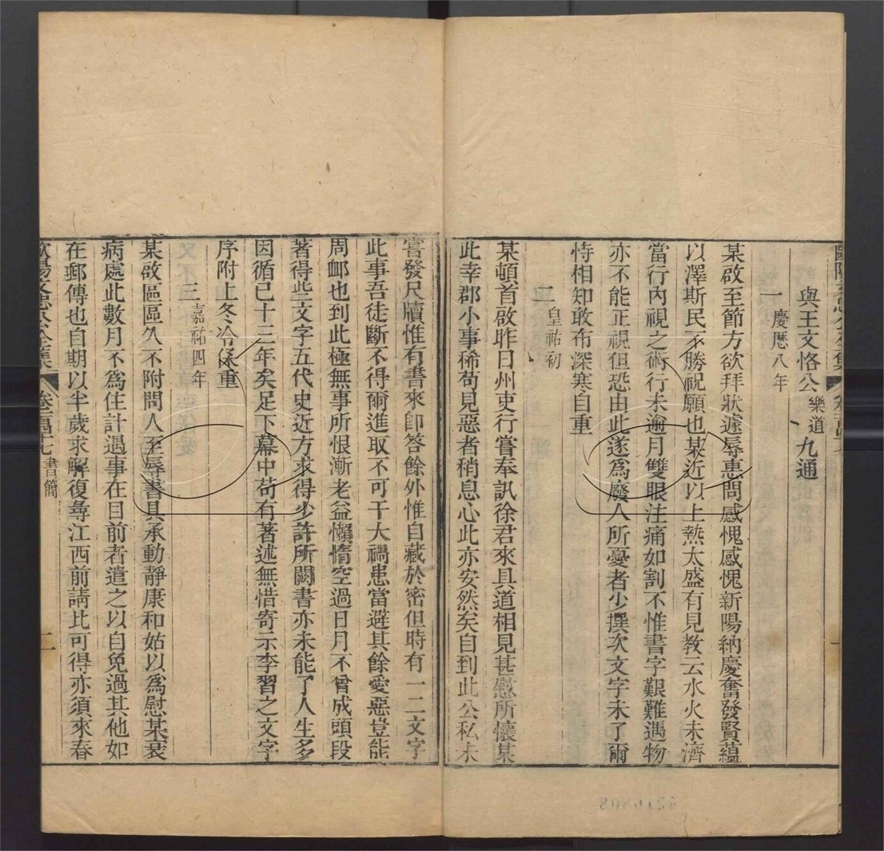 與王文恪公樂道九通
一慶曆八年
某啟至節方欲拜狀遽辱惠問感愧感愧新陽納慶奮發賢蘊
以澤斯民不勝祝願也某近以上熱太盛有見教云水火未濟
當行內視之術行未逾月雙眼注痛如割不惟書字艱難遇物
亦不能正視但恐由此遂為廢人所憂者少撰次文字未了爾
恃相知敢布深寒自重
二皇祐初
某頓首啟昨日州吏行嘗奉訊徐君來具道相見甚慰所懷某
此幸郡小事稀苟見惡者稍息心此亦安然矣自到此公私未
嘗發尺牘惟有書來卽答餘外惟自藏於密但時有一二文字
此事吾徒斷不得爾進取不可干大禍患當避其餘愛惡豈能
周卹也到此極無事所恨漸老益懶惰空過日月不曾成頭段
著得些文字五代史近方求得少許所闕書亦未能了人生多
因循已十三年矣足下幕中苟有著述無惜寄示李習之文字
序附上冬冷保重
三嘉祐四年
某啟區區久不附問人至辱書具承動靜康和姑以為慰某衰
病處此數月不為住計遇事在目前者遣之以自免過其他如
在郵傳也自期以半歲求解復尋江西前請比可得亦須來春
歐陽文忠公全集 卷一百四十七 書簡 二